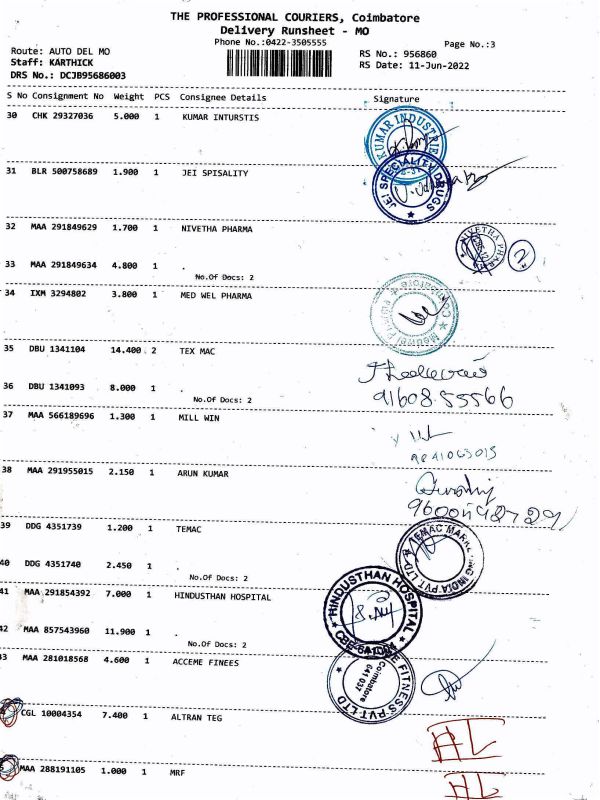 THE PROFESSIONAL COURIERS, Coimbatore
Delivery Runsheet - MO
Phone No.:0422-3505555
Page No.:3
Route: AUTO DEL MO
RS No.: 956860
Staff: KARTHICK
RS Date: 11-Jun-2022
DRS No.: DCJB95686003
S No Consignment No Weight PCS Consignee Details Signature
30 CHK 29327036 5.000 1 KUMAR INTURSTIS
KUMAR INDUSTRIE
31 BLR 500758689 1.900 1 JEI SPISALITY
JEI SPECIALITY DRUGS
32 MAA 291849629 1.700 1 NIVETHA PHARMA
NIVETHA PHAR
2
33 MAA 291849634 4.800 1 .
No.Of Docs: 2
34 IXM 3294802 3.800 1 MED WEL PHARMA
Medwel Pharma Coimbatore
35 DBU 1341104 14.400 2 TEX MAC
91608 55566
36 DBU 1341093 8.000 1 .
No.Of Docs: 2
37 MAA 566189696 1.300 1 MILL WIN
38 MAA 291955015 2.150 1 ARUN KUMAR
39 DDG 4351739 1.200 1 TEMAC
TEMAC MARKETING INDIA PVT LTD
40 DDG 4351740 2.450 1 .
No.Of Docs: 2
41 MAA 291854392 7.000 1 HINDUSTHAN HOSPITAL
HINDUSTHAN HOSPITAL
42 MAA 857543960 11.900 1 .
No.Of Docs: 2
43 MAA 281018568 4.600 1 ACCEME FINEES
FITNESS PVT LTD
Coimbatore
641 037
CGL 10004354 7.400 1 ALTRAN TEG
MAA 288191105 1.000 1 MRF